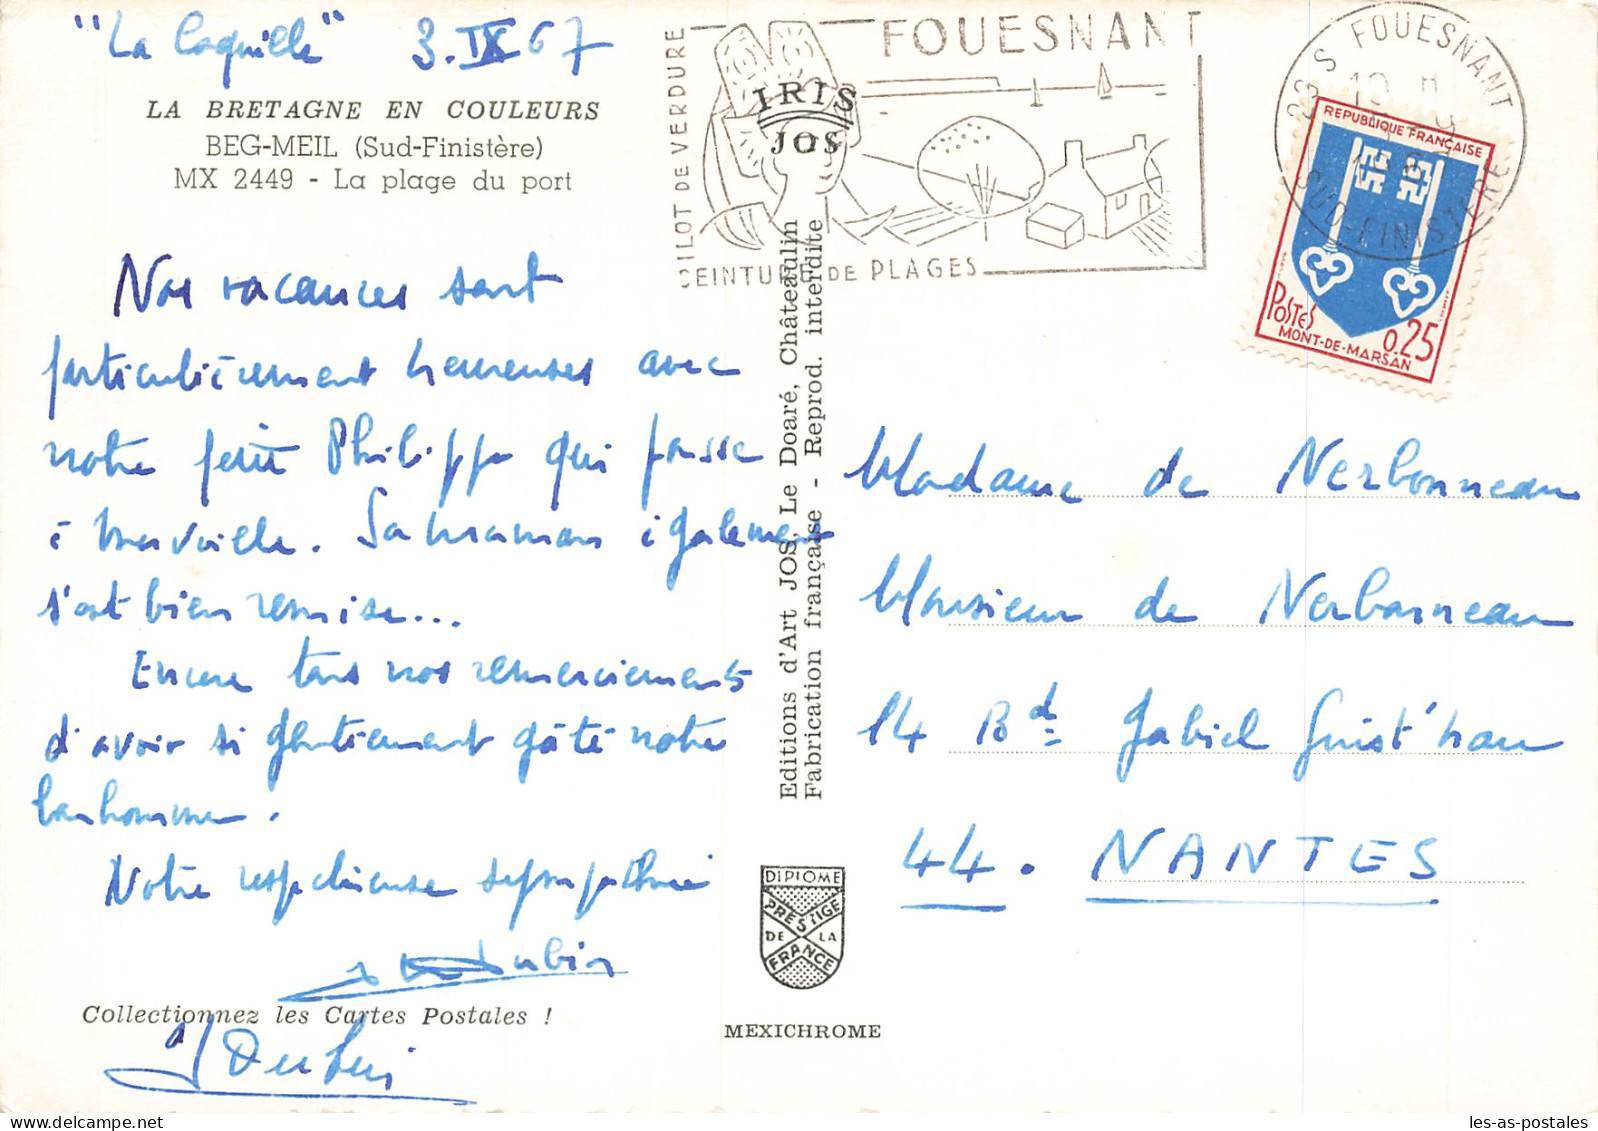 "La Coquille" 3.IX 67
LA BRETAGNE EN COULEURS
BEG-MEIL (Sud-Finistère)
MX 2449 - La plage du port
Nos vacances sont
particulièrement heureuses avec
notre petit Philippe qui pousse
à merveille. Sa maman également
s'est bien remise...
Encore tous nos remerciements
d'avoir si gentiment gâté notre
bonhomme.
Notre respectueuse sympathie
Collectionnez les Cartes Postales !
FOUESNANT
ILOT DE VERDURE
CEINTURE DE PLAGES
IRIS
JOS
S FOUESNANT
SUD-FINISTERE
REPUBLIQUE FRANÇAISE
POSTES
0.25
MONT-DE-MARSAN
Editions d'Art JOS, Le Doaré, Châteaulin
Fabrication française - Reprod. interdite
DIPLOME
PRESTIGE
DE LA
FRANCE
MEXICHROME
Madame de Nerbonneau
Monsieur de Nerbonneau
14 Bd Gabriel Guist'hau
44. NANTES
les-as-postales